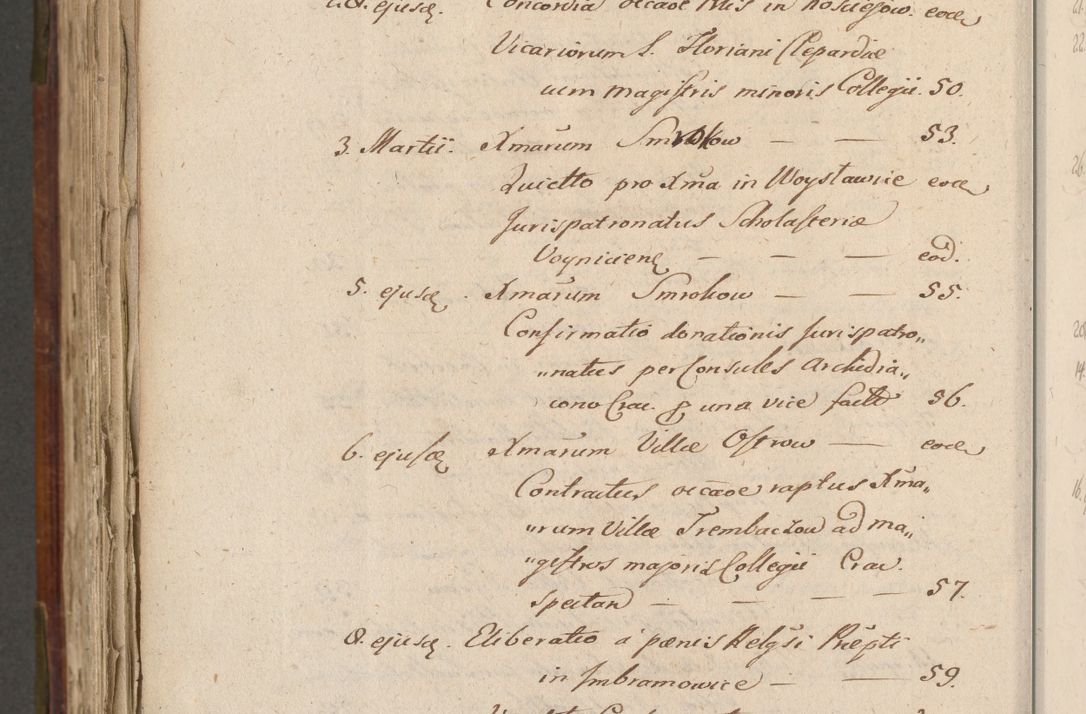 ejusd. Concordia occaõe Xmis in
Vicariorum S. Floriani Clepardiæ
cum magistris minoris Collegii. 50.
3. Martii. Xmarum Smrokow — — 53.
Quietto pro Xma in Woysławice eod
Jurispatronatus Scholasteriæ
Voynicien — — — eod.
5. ejusd. Xmarum Smrokow — — 55.
Confirmatio donationis Jurispatro„
„natus per Consules Archidia„
cono Crac. una vice factæ 56.
6. ejusd Xmarum Villæ Ostrow — eod
Contractus occaõe raptus Xma„
„rum Villæ Trembaczow ad ma„
„gistros majoris Collegii Crac.
spectan — — — — 57.
8. ejusd. Eliberatio a pœnis Relgsi Præpti
in Imbramowice — — 59.